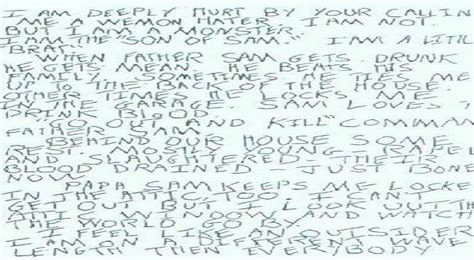 I AM DEEPLY HURT BY YOUR CALLIN
ME A WEMON HATER. I AM NOT.
BUT I AM A MONSTER.
I AM THE "SON OF SAM." I AM A LITTL
BRAT".
WHEN FATHER SAM GETS DRUNK
HE GETS MEAN. HE BEATS HIS
FAMILY. SOMETIMES HE TIES ME
UP TO THE BACK OF THE HOUSE.
OTHER TIMES HE LOCKS ME
IN THE GARAGE. SAM LOVES T
DRINK BLOOD.
GO OUT AND KILL" COMMAN
FATHER SAM.
BEHIND OUR HOUSE SOME
REST. MOSTLY YOUNG RAPED
AND SLAUGHTERED THEIR
BLOOD DRAINED JUST BONE
NOW
PAPA SAM KEEPS ME LOCKE
IN THE ATTIC, TOO. I CANT
GET OUT BUT I LOOK OUT T
ATTIC WINDOW AND WATCH
THE WORLD GO BY.
I FEEL LIKE AN OUTSIDER
I AM ON A DIFFERENT WAVE
LENGTH THEN EVERYBODY